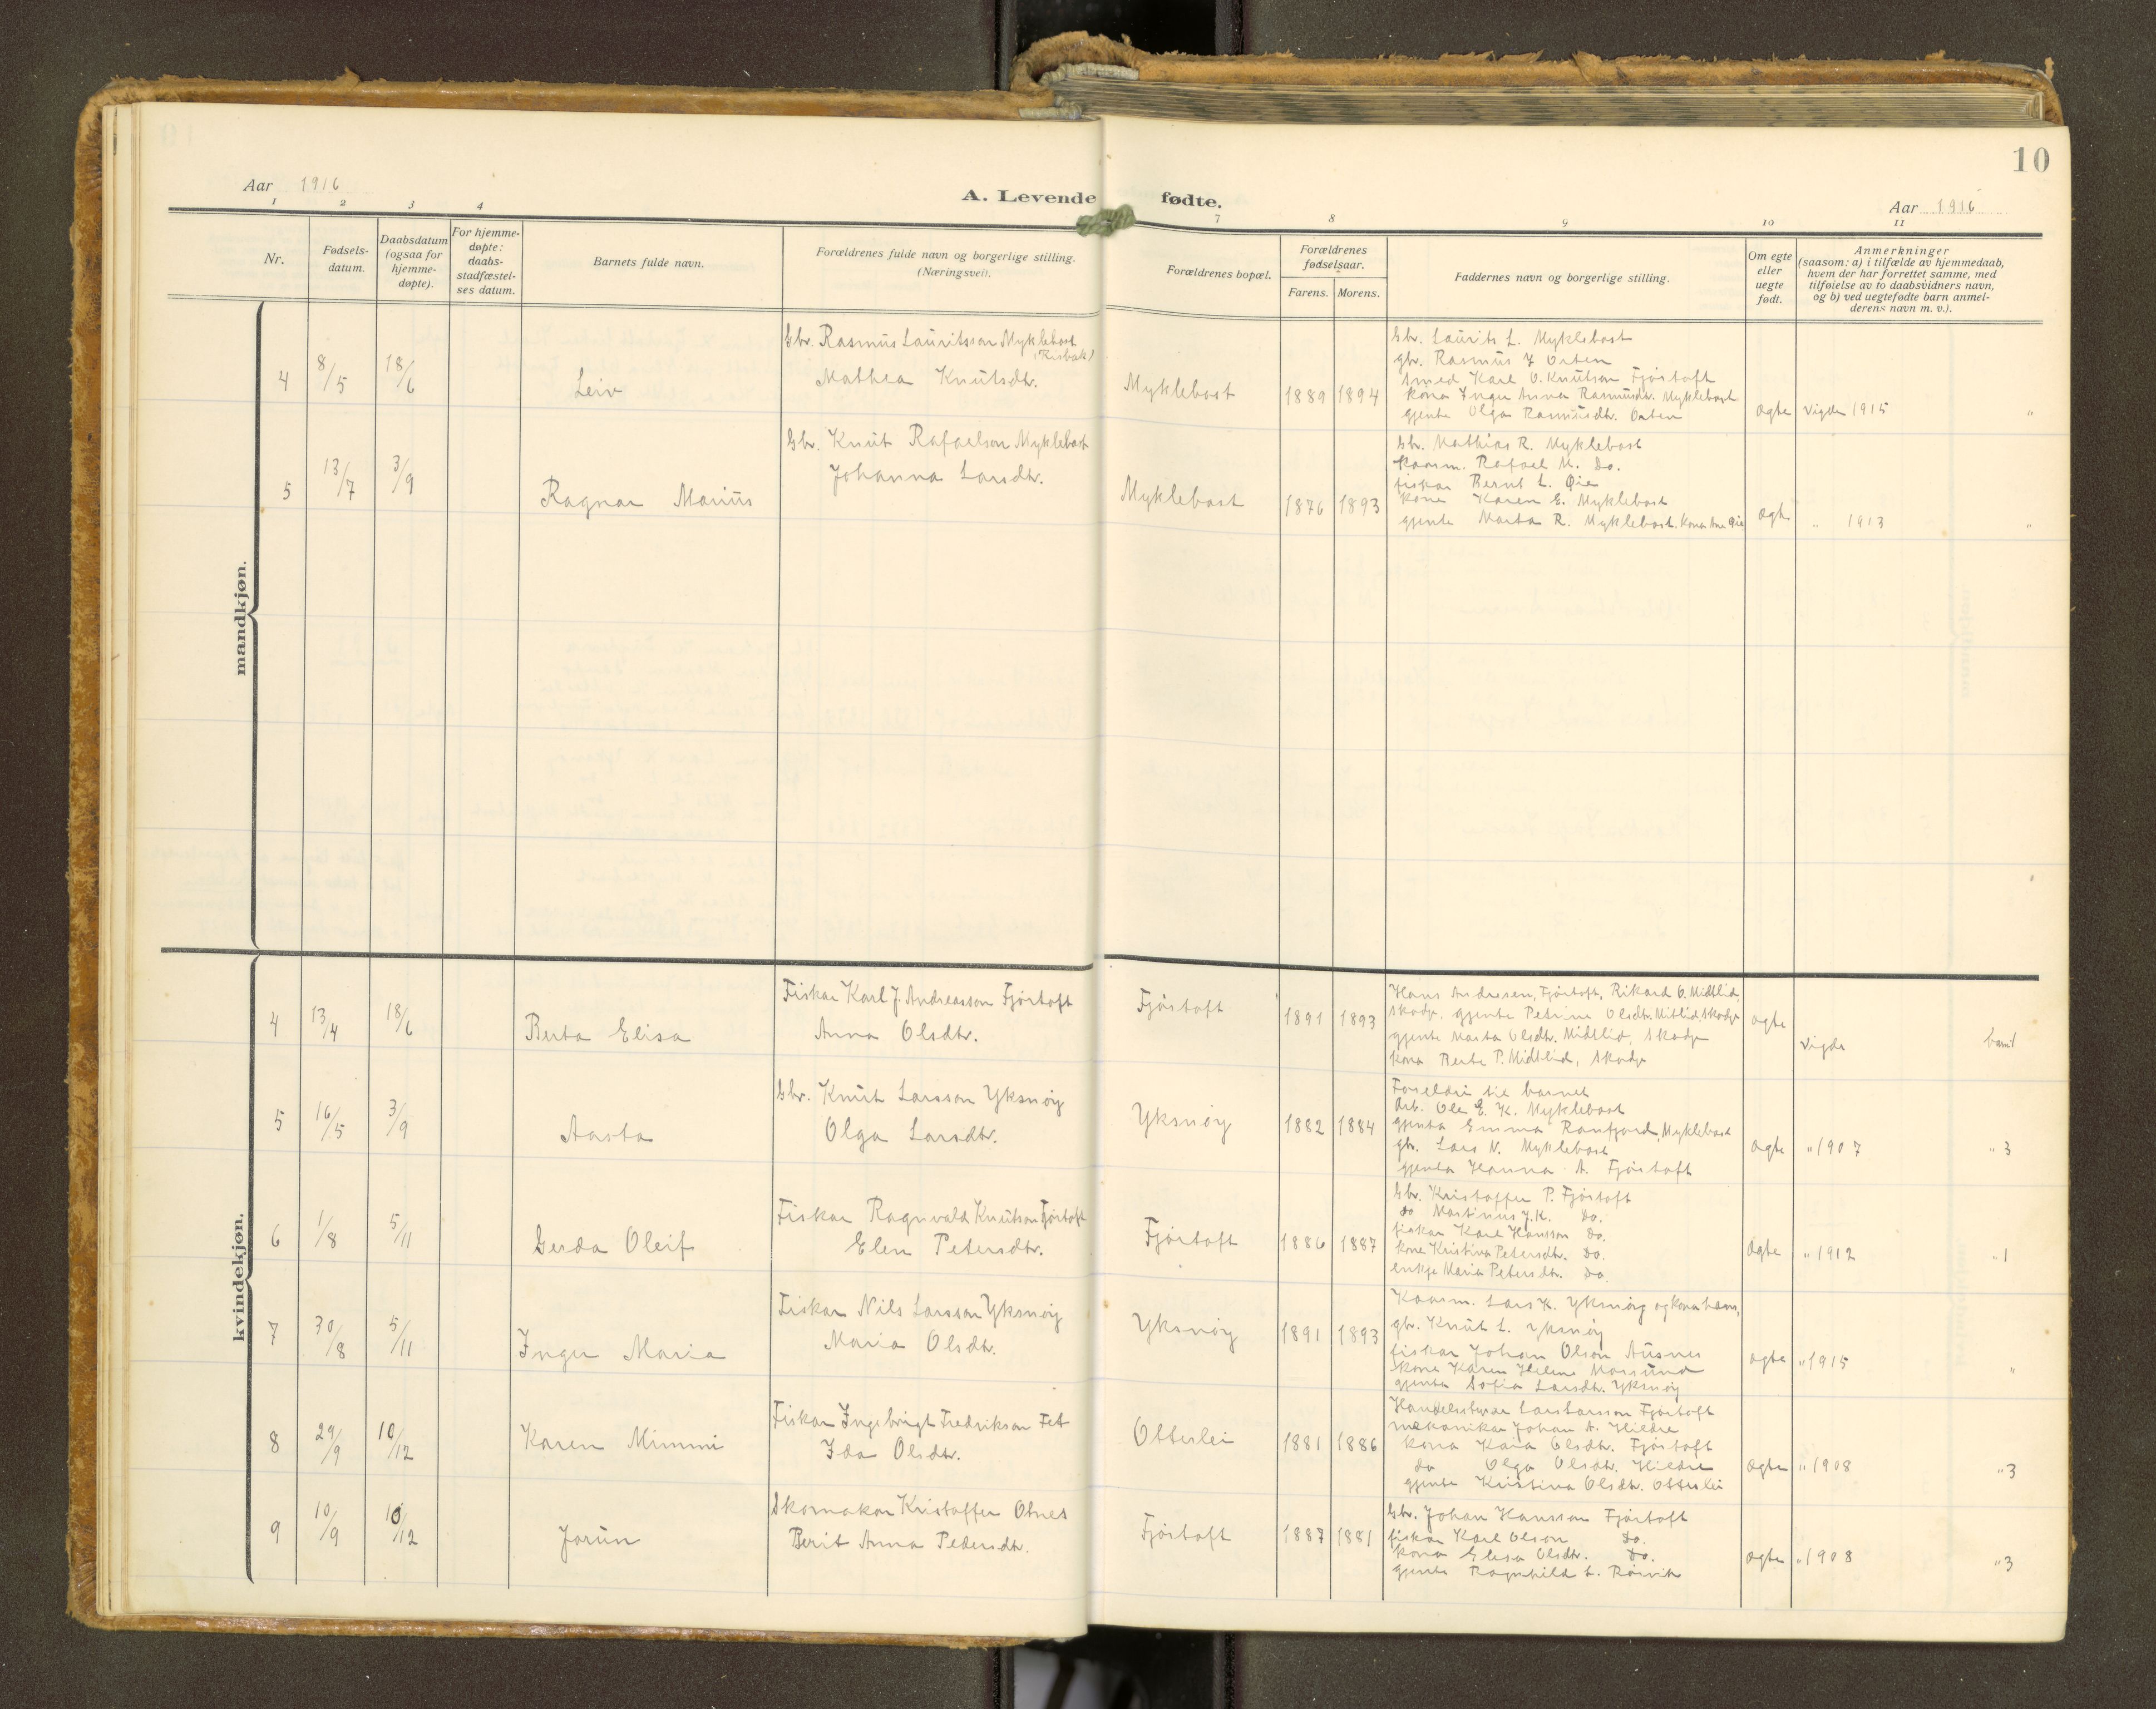 10
Aar 1916
A. Levende fødte.
Aar 1916
1 2 3 4 7 8 9 10 11
Nr.
Fødsels-
datum.
Daabsdatum
(ogsaa for
hjemme-
døpte).
For hjemme-
døpte:
daabs-
stadfæstel-
ses datum.
Barnets fulde navn.
Forældrenes fulde navn og borgerlige stilling.
(Næringsvei).
Forældrenes bopæl.
Forældrenes
fødselsaar.
Farens. Morens.
Faddernes navn og borgerlige stilling.
Om egte
eller
uegte
født.
Anmerkninger
(saasom: a) i tilfælde av hjemmedaab,
hvem der har forrettet samme, med
tilføielse av to daabsvidners navn,
og b) ved uegtefødte barn anmel-
derens navn m. v.).
mandkjøn.
4 8/5 18/6 Leiv
Gbr. Rasmus Lauritsson Myklebost
(Risbak)
Mathea Knutsdtr.
Myklebost 1889 1894
Gbr. Laurits L. Myklebost
gbr. Rasmus J Orten
smed Karl O. Knutson Fjörtoft
kona Inger Anna Rasmusdtr. Myklebost
gjenta Olga Rasmusdtr. Orten
ægte vigde 1915 "
5 13/7 3/9 Ragnar Marius
Gbr. Knut Rafaelson Myklebost
Johanna Larsdtr.
Myklebost 1876 1893
Gbr. Mathias R. Myklebost
kaarm. Rafael M. Do.
fiskar Bernt L. Øie
kona Karen E. Myklebost
gjenta Marta R. Myklebost. Kona Ane Øie
ægte " 1913 "
kvindekjøn.
4 13/4 18/6 Berta Elisa
Fiskar Karl J. Andreasson Fjörtoft
Anna Olsdtr.
Fjörtoft 1891 1893
Hans Andresen, Fjörtoft, Rikard O. Midtlid,
Skodje, gjenta Petrine Olsdtr. Mitlid, Skodje
gjenta Marta Olsdtr. Midtlid, Skodje
kona Berte P. Midtlid, Skodje
ægte vigde
5 16/5 3/9 Aasta
Gbr. Knut Larsson Yksnöy
Olga Larsdtr.
Yksnöy 1882 1884
Foreldri til barnet
Arb. Ole E. K. Myklebost
gjenta Emma Ranfjord, Myklebost
gbr. Lars N. Myklebost
gjenta Hanna A. Fjörtoft
ægte " 1907 " 3
6 1/8 5/11 Gerda Oleif
Fiskar Ragnvald Knutson Fjörtoft
Elen Petersdtr.
Fjörtoft 1886 1887
Gbr. Kristoffer P. Fjörtoft
do Martinus J. K. Do.
fiskar Karl Hansson Do.
kona Kristina Petersdtr. Do.
enkje Maria Petersdtr. Do.
ægte " 1912 " 1
7 30/8 5/11 Inger Maria
Fiskar Nils Larsson Yksnöy
Maria Olsdtr.
Yksnöy 1891 1893
Kaarm. Lars K. Yksnöy og kona hans,
gbr. Knut L. Yksnöy
fiskar Johan Olson Ausnes
kona Karen Helene Morsund
gjenta Sofia Larsdtr. Yksnöy
ægte " 1915 "
8 29/9 10/12 Karen Mimmi
Fiskar Ingebrigt Fredrikson Fet
Ida Olsdtr.
Otterlei 1881 1886
Handelsstyrar Lars Larsson Fjörtoft
mekanikar Johan A. Hildre
kona Kaia Olsdtr. Fjörtoft
do Olga Olsdtr. Hildre
gjenta Kristina Olsdtr. Otterlei
ægte " 1908 " 3
9 10/9 10/12 Jorun
Skomakar Kristoffer Otnes
Berit Anna Pedersdtr.
Fjörtoft 1887 1881
Gbr. Johan Hansson Fjörtoft
fiskar Karl Olson Do.
kona Elisa Olsdtr. Do.
gjenta Ragnhild L. Rörvik
ægte " 1908 " 3